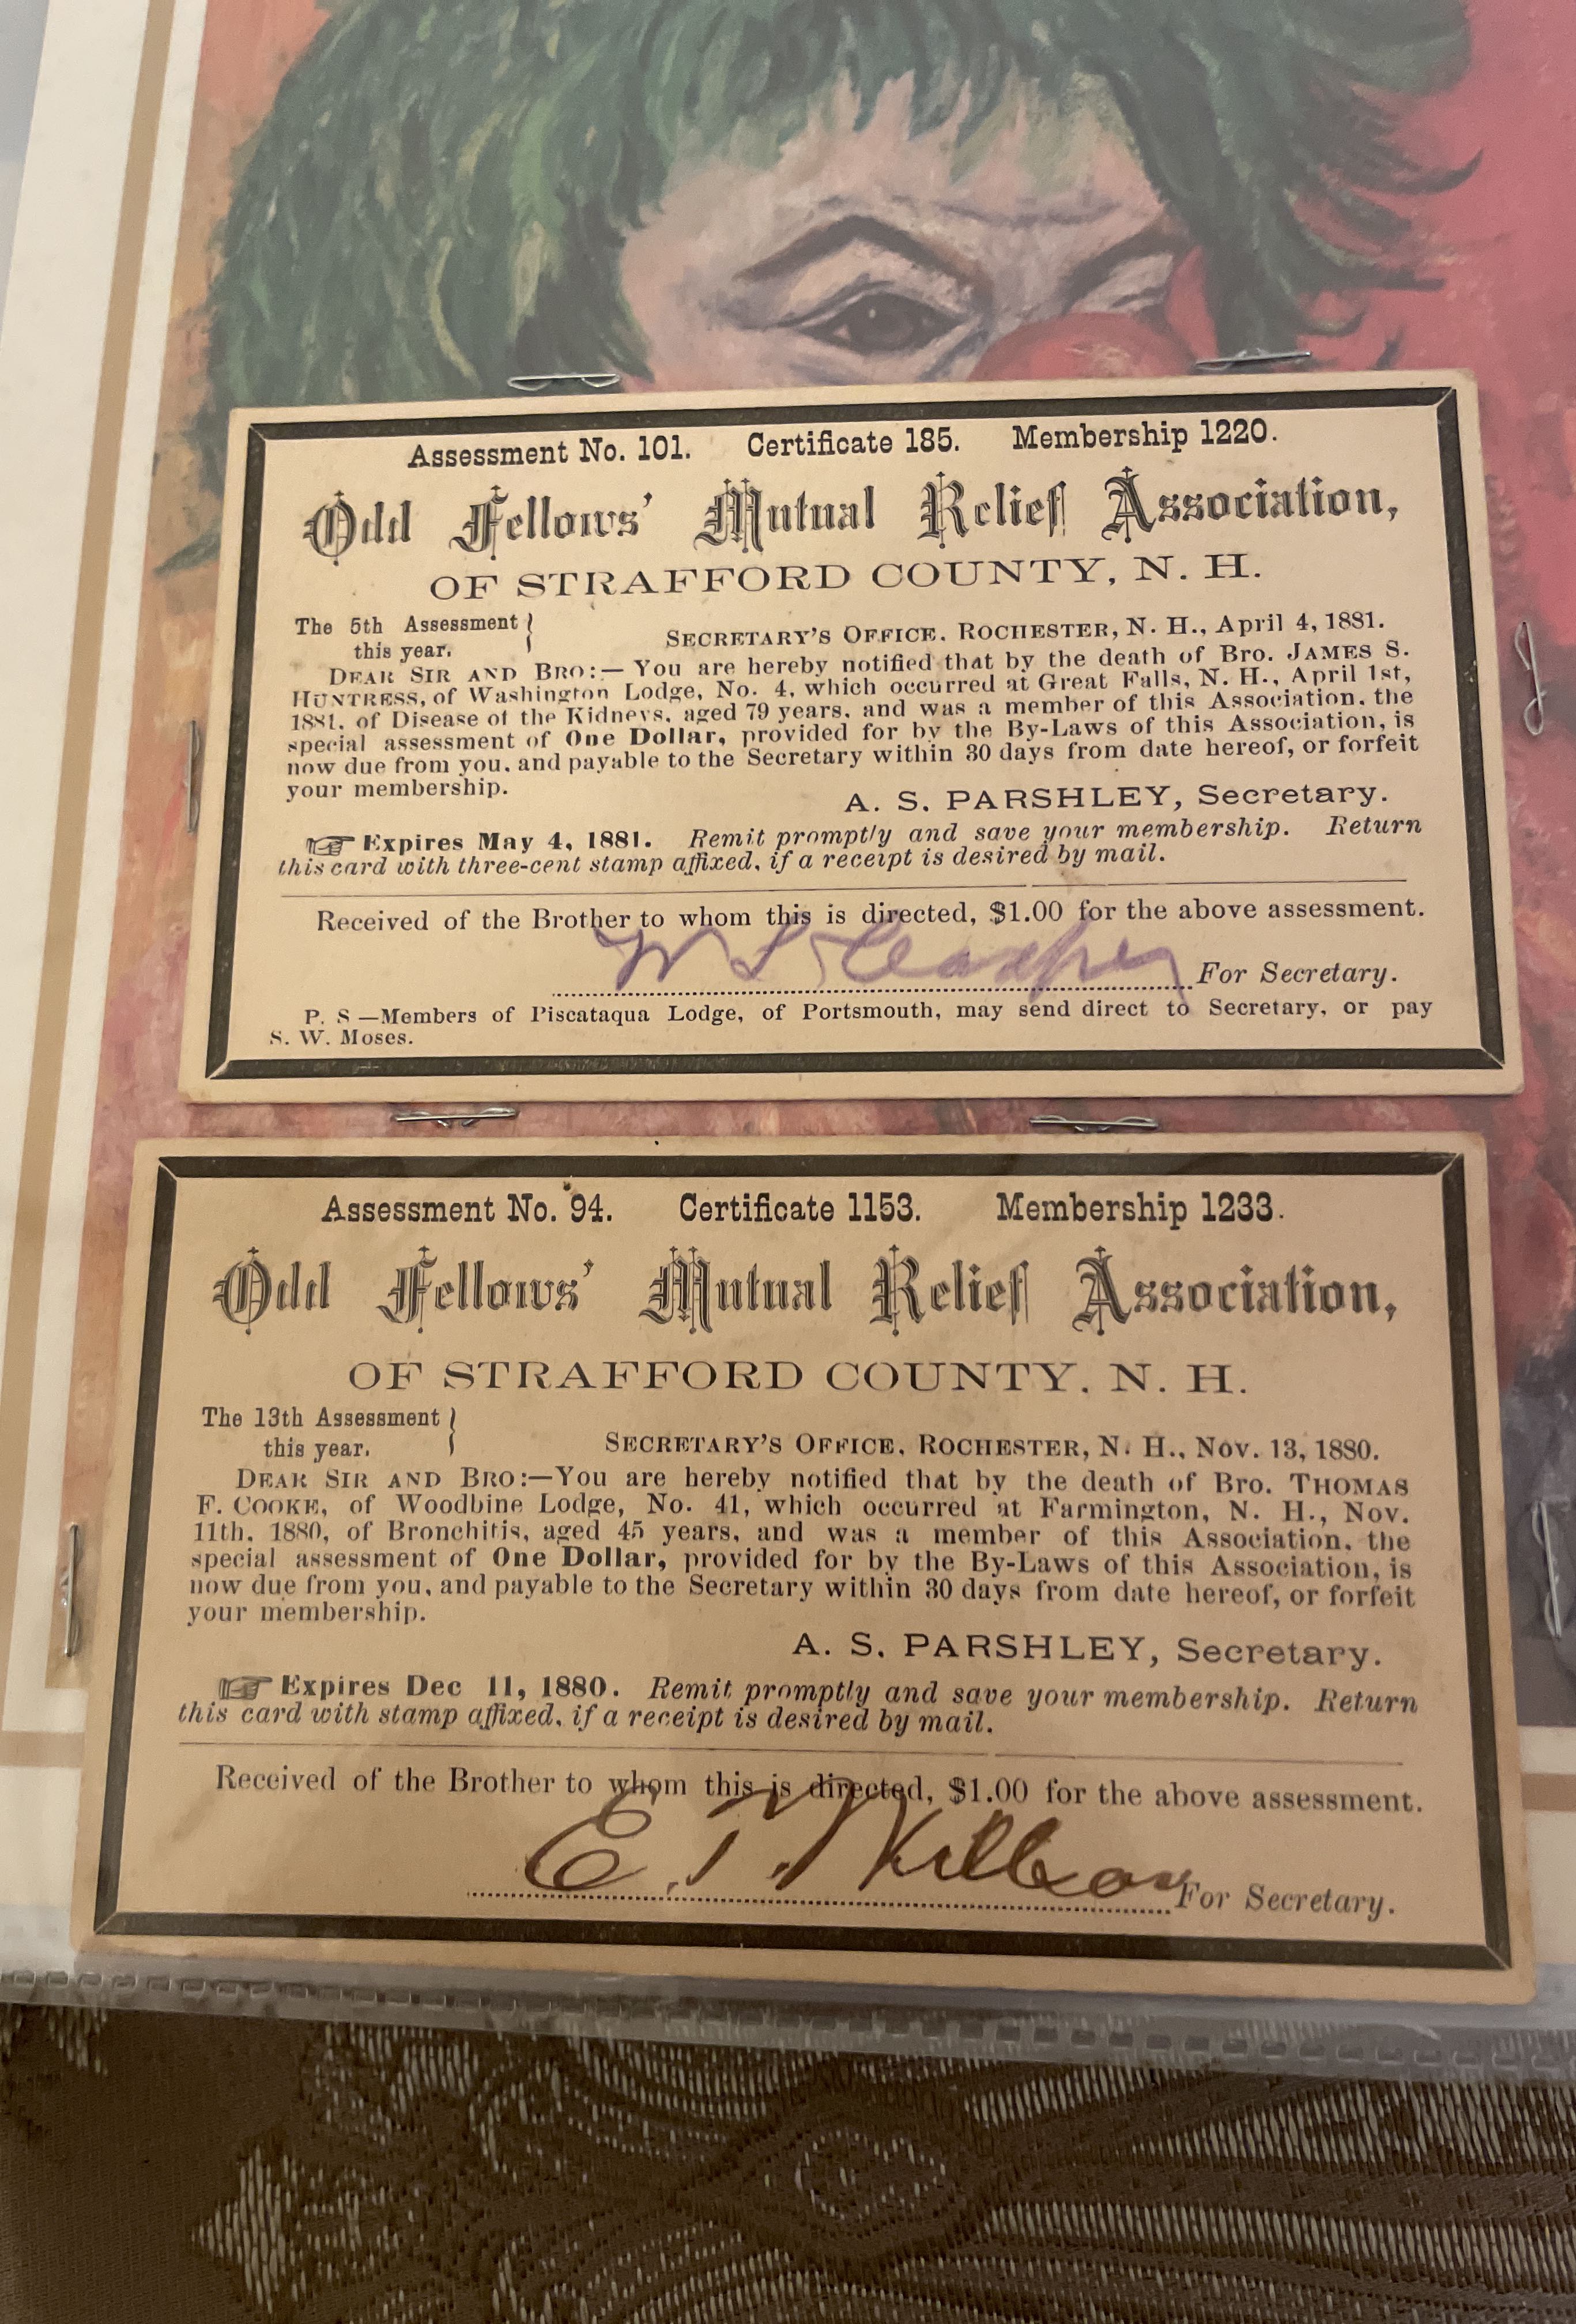 Assessment No. 101. Certificate 185. Membership 1220.
Odd Fellows' Mutual Relief Association,
OF STRAFFORD COUNTY, N. H.
The 5th Assessment
this year.
SECRETARY'S OFFICE, ROCHESTER, N. H., April 4, 1881.
DEAR SIR AND BRO:— You are hereby notified that by the death of Bro. JAMES S.
HUNTRESS, of Washington Lodge, No. 4, which occurred at Great Falls, N. H., April 1st,
1881, of Disease of the Kidneys, aged 79 years, and was a member of this Association, the
special assessment of One Dollar, provided for by the By-Laws of this Association, is
now due from you, and payable to the Secretary within 30 days from date hereof, or forfeit
your membership.
A. S. PARSHLEY, Secretary.
☞ Expires May 4, 1881. Remit promptly and save your membership. Return
this card with three-cent stamp affixed, if a receipt is desired by mail.
Received of the Brother to whom this is directed, $1.00 for the above assessment.
For Secretary.
P. S —Members of Piscataqua Lodge, of Portsmouth, may send direct to Secretary, or pay
S. W. Moses.
Assessment No. 94. Certificate 1153. Membership 1233.
Odd Fellows' Mutual Relief Association,
OF STRAFFORD COUNTY, N. H.
The 13th Assessment
this year.
SECRETARY'S OFFICE, ROCHESTER, N. H., Nov. 13, 1880.
DEAR SIR AND BRO:—You are hereby notified that by the death of Bro. THOMAS
F. COOKE, of Woodbine Lodge, No. 41, which occurred at Farmington, N. H., Nov.
11th, 1880, of Bronchitis, aged 45 years, and was a member of this Association, the
special assessment of One Dollar, provided for by the By-Laws of this Association, is
now due from you, and payable to the Secretary within 30 days from date hereof, or forfeit
your membership.
A. S. PARSHLEY, Secretary.
☞ Expires Dec 11, 1880. Remit promptly and save your membership. Return
this card with stamp affixed, if a receipt is desired by mail.
Received of the Brother to whom this is directed, $1.00 for the above assessment.
For Secretary.